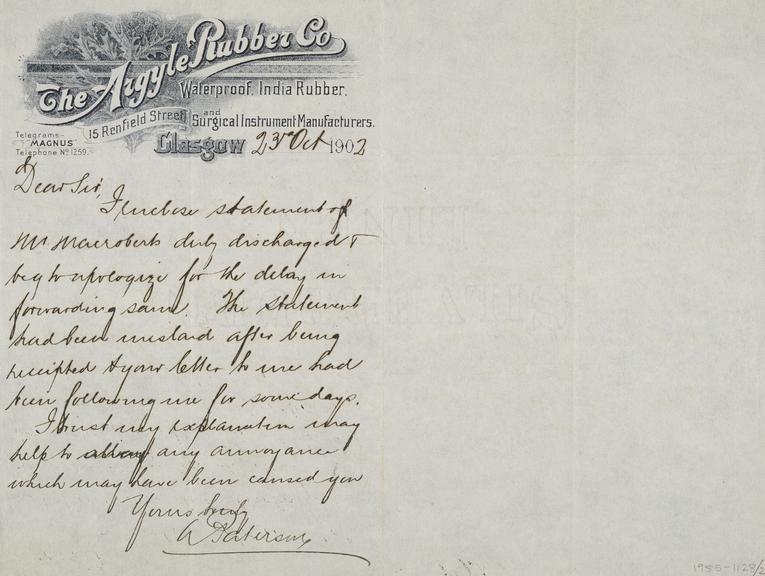 The Argyle Rubber Co
Waterproof, India Rubber,
15 Renfield Street and Surgical Instrument Manufacturers.
Telegrams—
"MAGNUS"
Telephone No 1259.
Glasgow 23rd Oct 1902
Dear Sir,
I enclose statement of
Mr Macroberts duly discharged &
beg to apologize for the delay in
forwarding same. The statement
had been mislaid after being
receipted & your letter to me had
been following me for some days.
I trust my explanation may
help to allay any annoyance
which may have been caused you
Yours truly
A Paterson
1955-1128/2